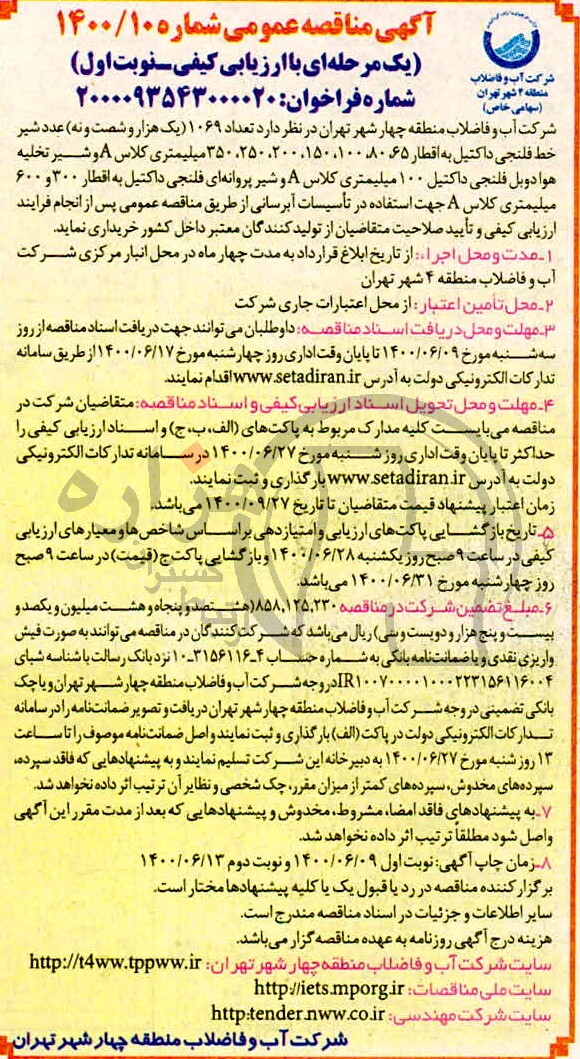 آگهی مناقصه عمومی شماره ۱۴۰۰/۱۰
(یک مرحله‌ای با ارزیابی کیفی - نوبت اول)
شماره فراخوان: ۲۰۰۰۰۹۳۵۴۳۰۰۰۰۲۰
شرکت آب و فاضلاب
منطقه ۴ شهر تهران
(سهامی خاص)
شرکت آب و فاضلاب منطقه چهار شهر تهران در نظر دارد تعداد ۱۰۶۹ (یک هزار و شصت و نه) عدد شیر
خط فلنجی داکتیل به اقطار ۶۵، ۸۰، ۱۰۰، ۱۵۰، ۲۰۰، ۲۵۰، ۳۵۰ میلیمتری کلاس A و شیر تخلیه
هوا دوبل فلنجی داکتیل ۱۰۰ میلیمتری کلاس A و شیر پروانه‌ای فلنجی داکتیل به اقطار ۳۰۰ و ۶۰۰
میلیمتری کلاس A جهت استفاده در تأسیسات آبرسانی از طریق مناقصه عمومی پس از انجام فرایند
ارزیابی کیفی و تأیید صلاحیت متقاضیان از تولیدکنندگان معتبر داخل کشور خریداری نماید.
۱- مدت و محل اجراء: از تاریخ ابلاغ قرارداد به مدت چهار ماه در محل انبار مرکزی شرکت
آب و فاضلاب منطقه ۴ شهر تهران
۲- محل تأمین اعتبار: از محل اعتبارات جاری شرکت
۳- مهلت و محل دریافت اسناد مناقصه: داوطلبان می‌توانند جهت دریافت اسناد مناقصه از روز
سه‌شنبه مورخ ۱۴۰۰/۰۶/۰۹ تا پایان وقت اداری روز چهارشنبه مورخ ۱۴۰۰/۰۶/۱۷ از طریق سامانه
تدارکات الکترونیکی دولت به آدرس www.setadiran.ir اقدام نمایند.
۴- مهلت و محل تحویل اسناد ارزیابی کیفی و اسناد مناقصه: متقاضیان شرکت در
مناقصه می‌بایست کلیه مدارک مربوط به پاکت‌های (الف، ب، ج) و اسناد ارزیابی کیفی را
حداکثر تا پایان وقت اداری روز شنبه مورخ ۱۴۰۰/۰۶/۲۷ در سامانه تدارکات الکترونیکی
دولت به آدرس www.setadiran.ir بارگذاری و ثبت نمایند.
زمان اعتبار پیشنهاد قیمت متقاضیان تا تاریخ ۱۴۰۰/۰۹/۲۷ می‌باشد.
۵- تاریخ بازگشایی پاکت‌های ارزیابی و امتیازدهی بر اساس شاخص‌ها و معیارهای ارزیابی
کیفی در ساعت ۹ صبح روز یکشنبه ۱۴۰۰/۰۶/۲۸ و بازگشایی پاکت ج (قیمت) در ساعت ۹ صبح
روز چهارشنبه مورخ ۱۴۰۰/۰۶/۳۱ می‌باشد.
۶- مبلغ تضمین شرکت در مناقصه ۸۵۸,۱۲۵,۲۳۰ (هشتصد و پنجاه و هشت میلیون و یکصد و
بیست و پنج هزار و دویست و سی) ریال می‌باشد که شرکت‌کنندگان در مناقصه می‌توانند به صورت فیش
واریزی نقدی و یا ضمانت‌نامه بانکی به شماره حساب ۴-۳۱۵۶۱۱۶-۱۰ نزد بانک رسالت با شناسه شبای
IR۱۰۰۷۰۰۰۰۱۰۰۰۲۲۳۱۵۶۱۱۶۰۰۴ در وجه شرکت آب و فاضلاب منطقه چهار شهر تهران و یا چک
بانکی تضمینی در وجه شرکت آب و فاضلاب منطقه چهار شهر تهران دریافت و تصویر ضمانت‌نامه را در سامانه
تدارکات الکترونیکی دولت در پاکت (الف) بارگذاری و ثبت نمایند و اصل ضمانت‌نامه موصوف را تا ساعت
۱۳ روز شنبه مورخ ۱۴۰۰/۰۶/۲۷ به دبیرخانه این شرکت تسلیم نمایند و به پیشنهادهایی که فاقد سپرده،
سپرده‌های مخدوش، سپرده‌های کمتر از میزان مقرر، چک شخصی و نظایر آن ترتیب اثر داده نخواهد شد.
۷- به پیشنهادهای فاقد امضا، مشروط، مخدوش و پیشنهادهایی که بعد از مدت مقرر این آگهی
واصل شود مطلقاً ترتیب اثر داده نخواهد شد.
۸- زمان چاپ آگهی: نوبت اول ۱۴۰۰/۰۶/۰۹ و نوبت دوم ۱۴۰۰/۰۶/۱۳
برگزارکننده مناقصه در رد یا قبول یک یا کلیه پیشنهادها مختار است.
سایر اطلاعات و جزئیات در اسناد مناقصه مندرج است.
هزینه درج آگهی روزنامه به عهده مناقصه‌گزار می‌باشد.
سایت شرکت آب و فاضلاب منطقه چهار شهر تهران: http://t4ww.tppww.ir
سایت ملی مناقصات: http://iets.mporg.ir
سایت شرکت مهندسی: http:tender.nww.co.ir
شرکت آب و فاضلاب منطقه چهار شهر تهران